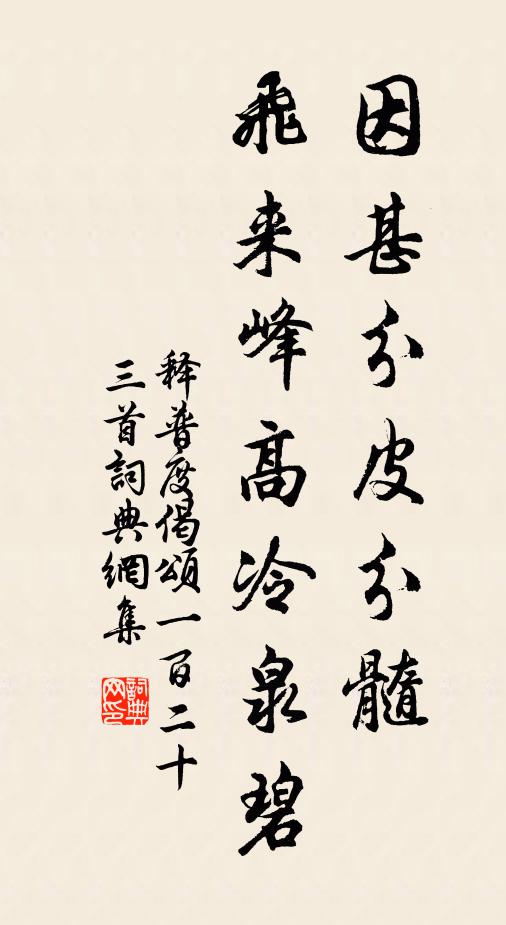 因甚分皮分髓
飛来峰高冷泉碧
释普度偈頌一百二十
三首詞典網集
詞典网印